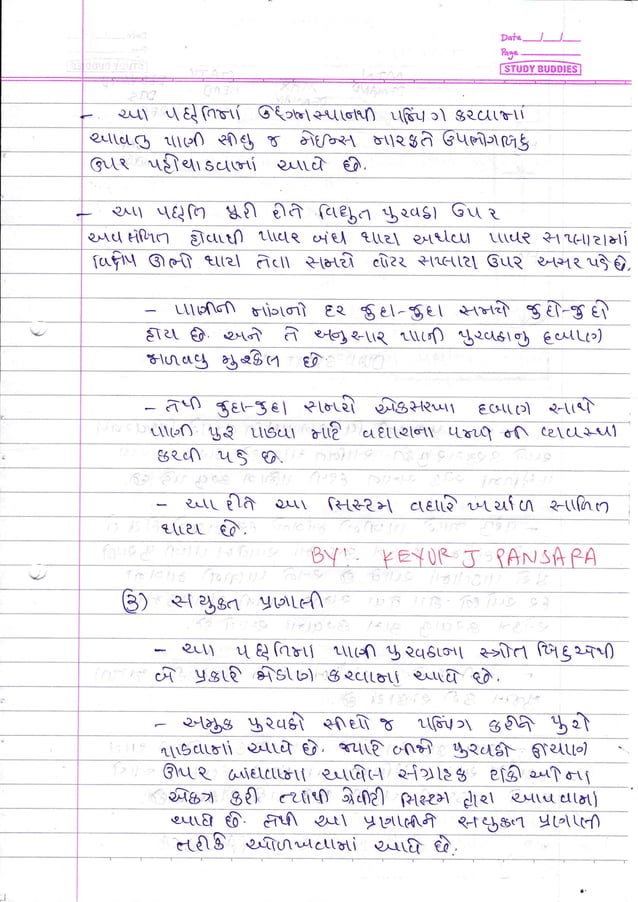 Date / /
Page
STUDY BUDDIES
- આ પદ્ધતિમાં ઉદગમસ્થાનથી પમ્પિંગ કરવામાં
આવતુ પાણી સીધુ જ મેઇન્સ મારફતે ઉપભોગબિંદુ
ઉપર પહોંચાડવામાં આવે છે.
- આ પદ્ધતિ પૂરી રીતે વિદ્યુત પુરવઠા ઉપર
અવલંબિત હોવાથી પાવર બંધ થાય અથવા પાવર સપ્લાયમાં
વિક્ષેપ ઊભો થાય તેવા સમયે વોટર સપ્લાય ઉપર અસર પડે છે.
- પાણીની માંગનો દર જુદા-જુદા સમયે જુદો-જુદો
હોય છે. અને તે અનુસાર પાણી પુરવઠાનુ દબાણ
મળવવુ મુશ્કેલ છે
- તેથી જુદા-જુદા સમયે એકસરખા દબાણ સાથે
પાણી પુરૂ પાડવા માટે વધારાના પમ્પ ની વ્યવસ્થા
કરવી પડે છે.
- આ રીતે આ સિસ્ટમ વધારે ખર્ચાળ સાબિત
થાય છે.
BY:- KEYUR J PANSARA
(૩) સયુક્ત પ્રણાલી
- આ પદ્ધતિમા પાણી પુરવઠાના સ્ત્રોત બિંદુએથી
બે પ્રકારે જોડાણ કરવામા આવે છે.
- અમુક પુરવઠો સીધો જ પમ્પિંગ કરીને પુરો
પાડવામાં આવે છે. જ્યારે બીજો પુરવઠો ઊંચાણ
ઉપર બાંધવામા આવેલ સંગ્રાહક ટાંકીઓના
એકત્ર કરી ત્યાંથી ગ્રેવીટી સિસ્ટમ દ્વારા આપવામા
આવે છે. તેથી આ પ્રણાલીને સયુક્ત પ્રણાલી
તરીકે ઓળખવામાં આવે છે.